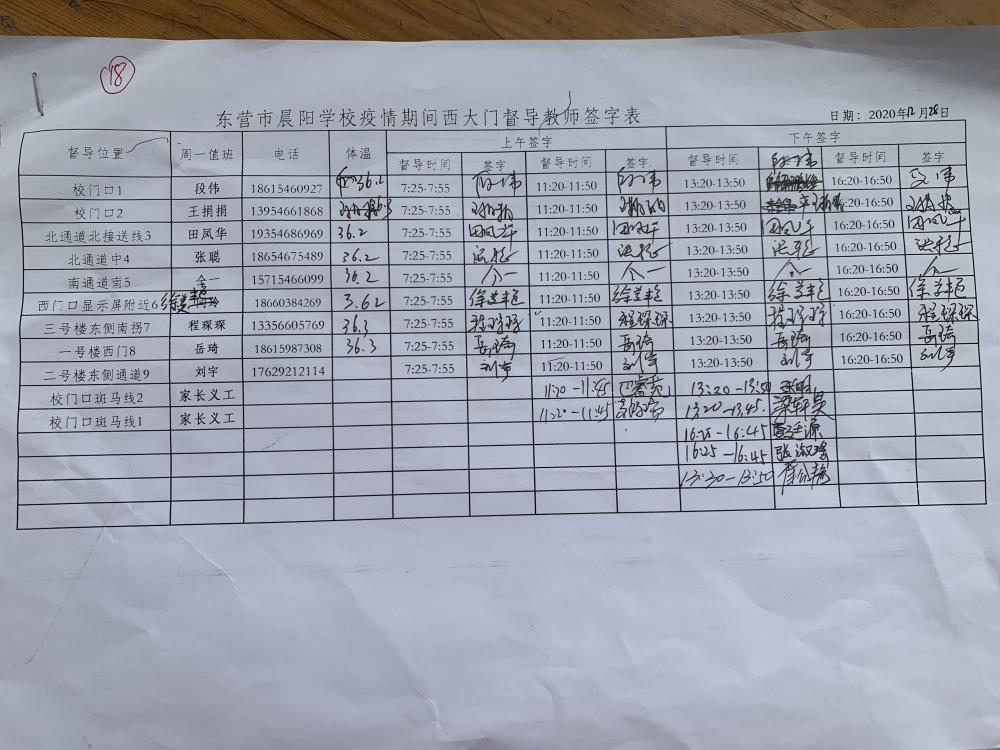 18
东营市晨阳学校疫情期间西大门督导教师签字表
日期：2020年12月28日
督导位置 周一值班 电话 体温 上午签字 下午签字
督导时间 签字 督导时间 签字 督导时间 签字 督导时间 签字
校门口1 段伟 18615460927 36.2 7:25-7:55 段伟 11:20-11:50 段伟 13:20-13:50 段伟 16:20-16:50
校门口2 王捐捐 13954661868 7:25-7:55 11:20-11:50 13:20-13:50 16:20-16:50
北通道北接送线3 田凤华 19354686969 36.2 7:25-7:55 田凤华 11:20-11:50 田凤华 13:20-13:50 田凤华 16:20-16:50 田凤华
北通道中4 张聪 18654675489 36.2 7:25-7:55 11:20-11:50 13:20-13:50 16:20-16:50
南通道南5 仝一 15715466099 36.2 7:25-7:55 仝一 11:20-11:50 仝一 13:20-13:50 16:20-16:50
西门口显示屏附近6 18660384269 36.2 7:25-7:55 11:20-11:50 13:20-13:50 16:20-16:50
三号楼东侧南拐7 程琛琛 13356605769 36.3 7:25-7:55 程琛琛 11:20-11:50 程琛琛 13:20-13:50 程琛琛 16:20-16:50 程琛琛
一号楼西门8 岳琦 18615987308 36.3 7:25-7:55 岳琦 11:20-11:50 岳琦 13:20-13:50 岳琦 16:20-16:50 岳琦
二号楼东侧通道9 刘宇 17629212114 7:25-7:55 刘宇 11:20-11:50 刘宇 13:20-13:50 刘宇 16:20-16:50 刘宇
校门口斑马线2 家长义工 11:20-11:45 13:20-13:50
校门口斑马线1 家长义工 11:20-11:45 13:20-13:45
16:25-16:45
16:25-16:45
13:30-13:50